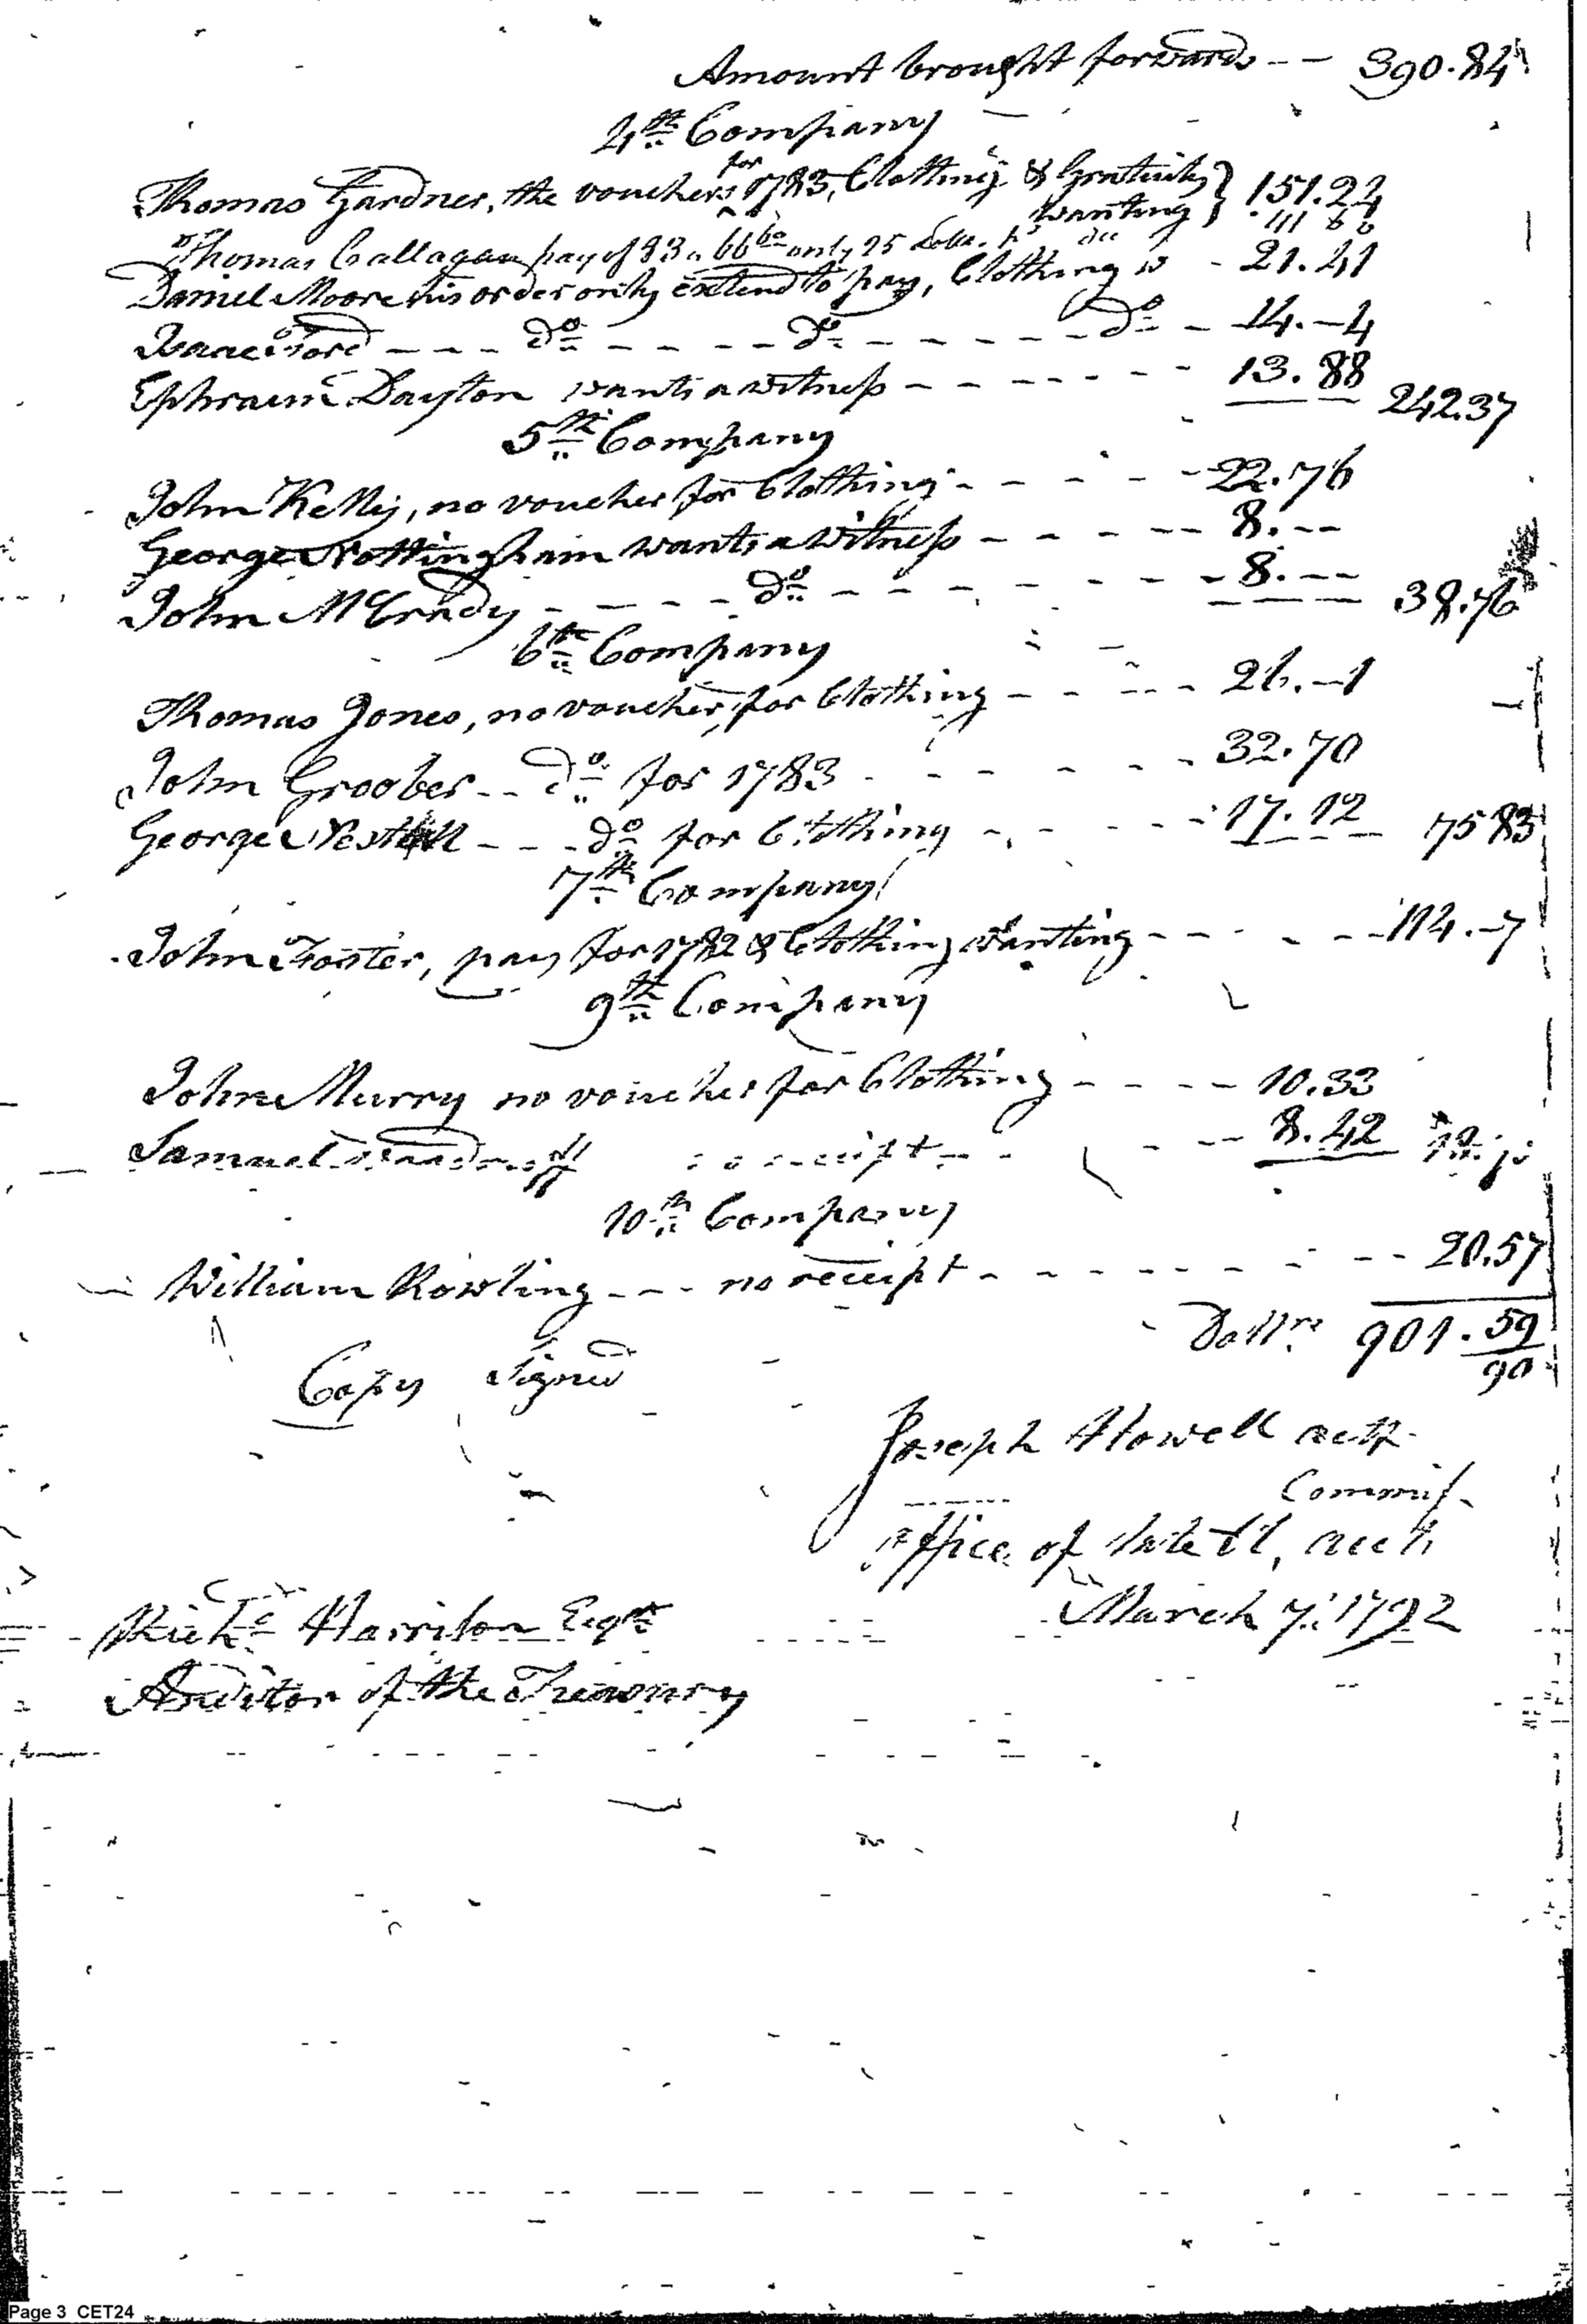 Amount brought forwards -- 390.84
4th Company
Thomas Gardner, the vouchers for 1783, Clothing & Gratuity wanting } 151.24
Thomas Callagan pay of 83 is 66 60 only 25 Dolls.
Daniel Moore his order only extend to pay, Clothing is - 21.41
Isaac Ford --- do ---- do ------ do - 14.-4
Ephraim Dayton wants a witness ------- 13.88 242.37
5th Company
John Kelly, no voucher for Clothing ----- 22.76
George Nottingham wants a witness ----- 8.--
John McCrady ---- do ------- 8.-- 38.76
6th Company
Thomas Jones, no voucher for Clothing ----- 26.-1
John Groober -- do for 1783 ------ 32.70
George --- do for Clothing ----- 17.12 75 83
7th Company
John Foster, pay for 1782 & Clothing wanting ----- 114.-7
9th Company
John Murry no voucher for Clothing ---- 10.33
Samuel Woodruff receipt -- -- 8.42
10th Company
William Rowling --- no receipt -------- 20.57
Dollrs 901.59/90
Copy Signed
Joseph Howell actg
Commiss.
Office of Army Acct
March 7. 1792
Richd Harrison Esqr
Auditor of the Treasury
Page 3 CET24